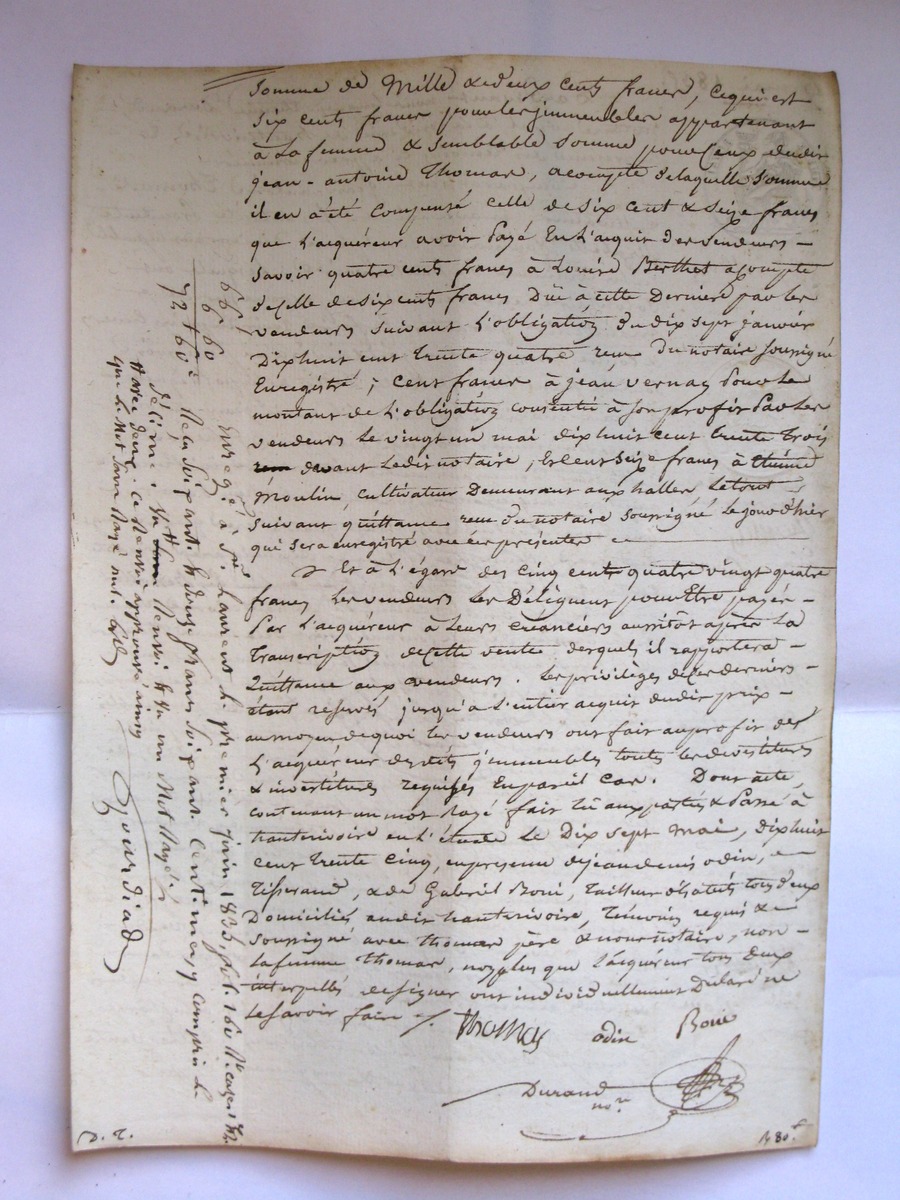 Somme de Mille & deux cents francs, ce qui est
Six cents francs pour les immeubles appartenant
à la femme & semblable Somme pour Ceux dudit
jean-antoine Thomas, acompte de laquelle Somme
il en a été Compensé celle de Six Cent & Seize francs
que L'acquéreur avoir Payé En L'acquit des vendeurs -
Savoir quatre cents francs à Louise Berthet acompte
de Celle de Six cents francs Düe à cette Derniere par les
vendeurs suivant L'obligation du dix sept janvier
Dixhuit cent trente quatre reçue Du notaire Soussigné
Enregistré ; Cent francs à jean vernay Pour Le
montant de L'obligation consentie à Son profit Par Les
vendeurs Le vingt un mai dixhuit cent trente Trois
devant Ledit notaire, Et Cent Seize francs à
Moulin Cultivateur Demeurant aux halles Le tout
Suivant quittance reçue du notaire Soussigné Le jour d'hier
qui sera enregistré avec Ces présentes
Et à L'égard des Cinq cent quatre vingt quatre
francs Les vendeurs Les Délèguent pour Etre payés -
Par L'acquéreur à Leurs Créanciers aussitôt après La
Transcription de Cette vente desquels il rapportera -
Quittance aux vendeurs. Les privilèges de Ces derniers -
étant reservés jusqu'a L'entier acquit dudit prix -
au moyen de quoi Les vendeurs ont fait au profit de
L'acquéreur desdits immeubles toutes Les devestitures
& investitures requises En pareil Cas. Dont acte,
Contenant un mot Rayé fait Lû aux parties & Passé à
hauterivoire en L'étude Le Dix Sept Mai, dixhuit
Cent trente Cinq, en presence de jean denis odin,
Tisserand, & de Gabriel Roue, Tailleur d'habits tous deux
Domiciliés audit hauterivoire, Témoins requis &
Soussigné avec Thomas père & nous notaire, non -
La femme Thomas, non plus que L'acquéreur tous deux
interpellés de signer ont individuellement Déclaré ne
Le Savoir faire /.
Thomas odin Roue
Durand
nre
D. T.
66
6 60
72 60
Enregé. à St. Laurent le premier juin 1835, fol. 160
Reçu Soixante & douze francs Soixante Centimes y compris le
décime.
que le Mot Rayé nul.
Gourdiad